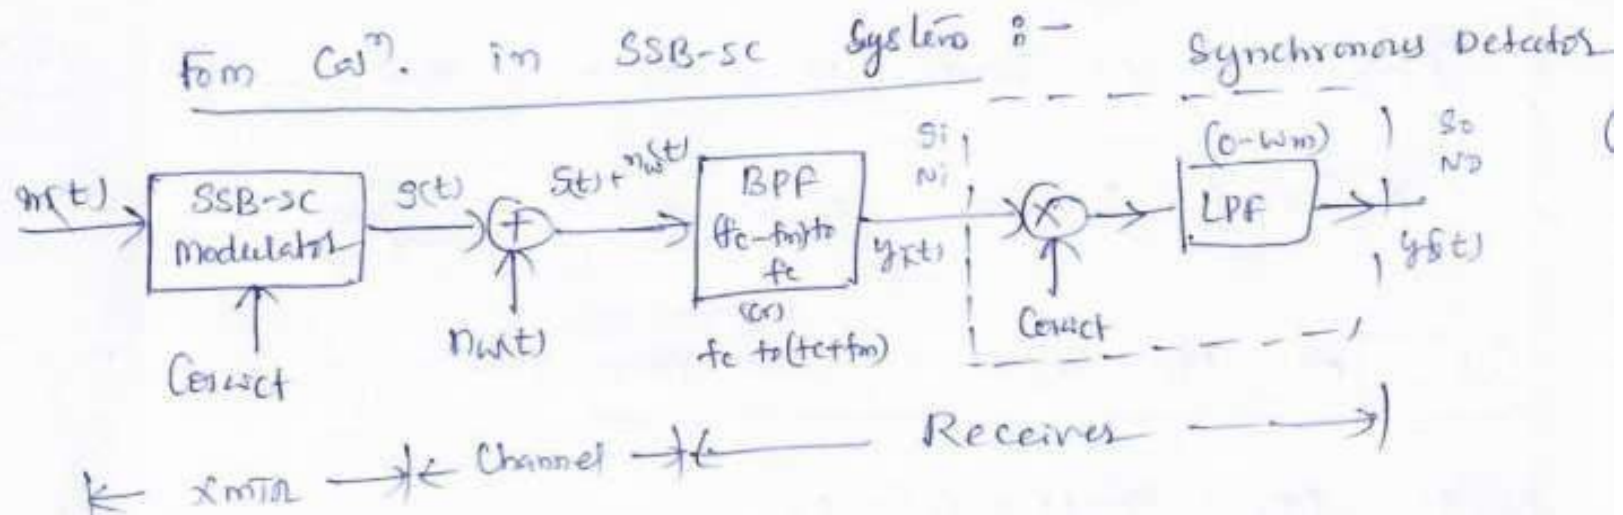 Fom Caln. in SSB-SC System :-
Synchronous Detector
m(t)
SSB-SC
Modulator
s(t)
+
s(t)+nw(t)
BPF
(fc-fm) to
fc
(or)
fc to (fc+fm)
Si
Ni
yi(t)
×
(0-wm)
LPF
So
No
(
Coswct
nw(t)
Coswct
Xmtr
Channel
Receiver